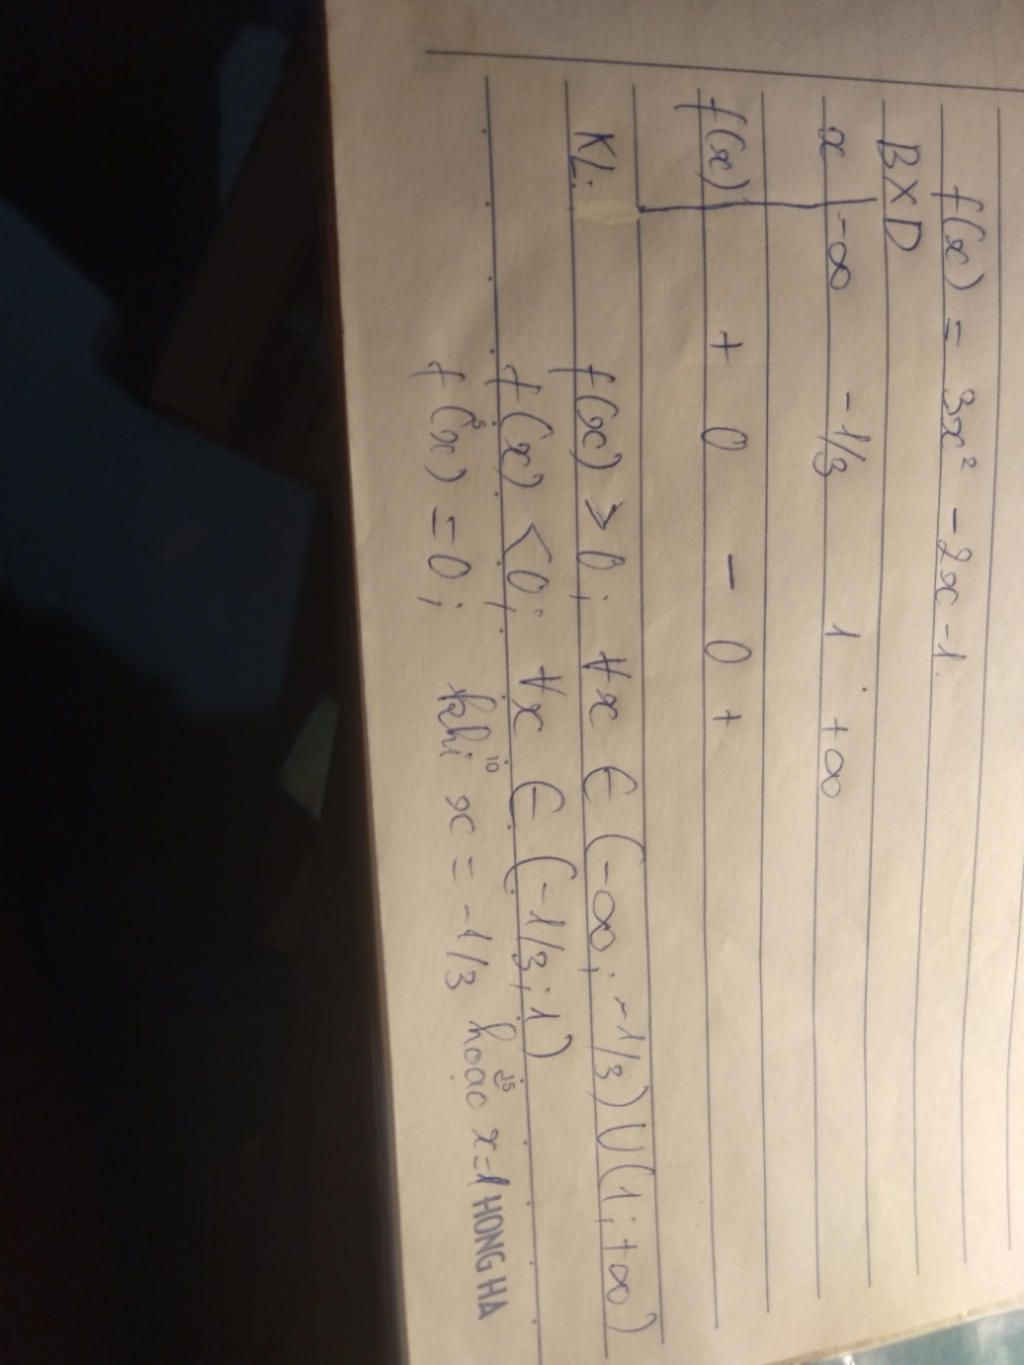 f(x) = 3x² - 2x - 1.
BXD
x -∞ -1/3 1 +∞
f(x) + 0 - 0 +
KL: f(x) > 0; ∀x ∈ (-∞; -1/3) U (1; +∞)
f(x) < 0; ∀x ∈ (-1/3; 1)
5 10 15
f(x) = 0; khi x = -1/3 hoặc x = 1 HONG HA